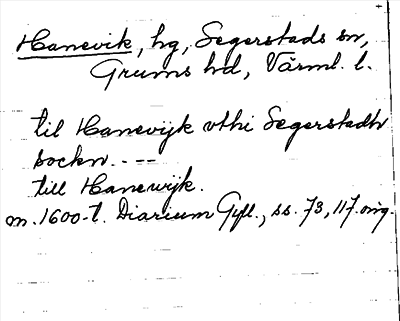 Hanevik, hg, Segerstads sn,
Grums hd, Värml. l.
til Hanevijk vthi Segerstadh
sockn. - --
till Hanewijk.
m. 1600-t. Diarium Gyll., ss. 73, 117. orig.